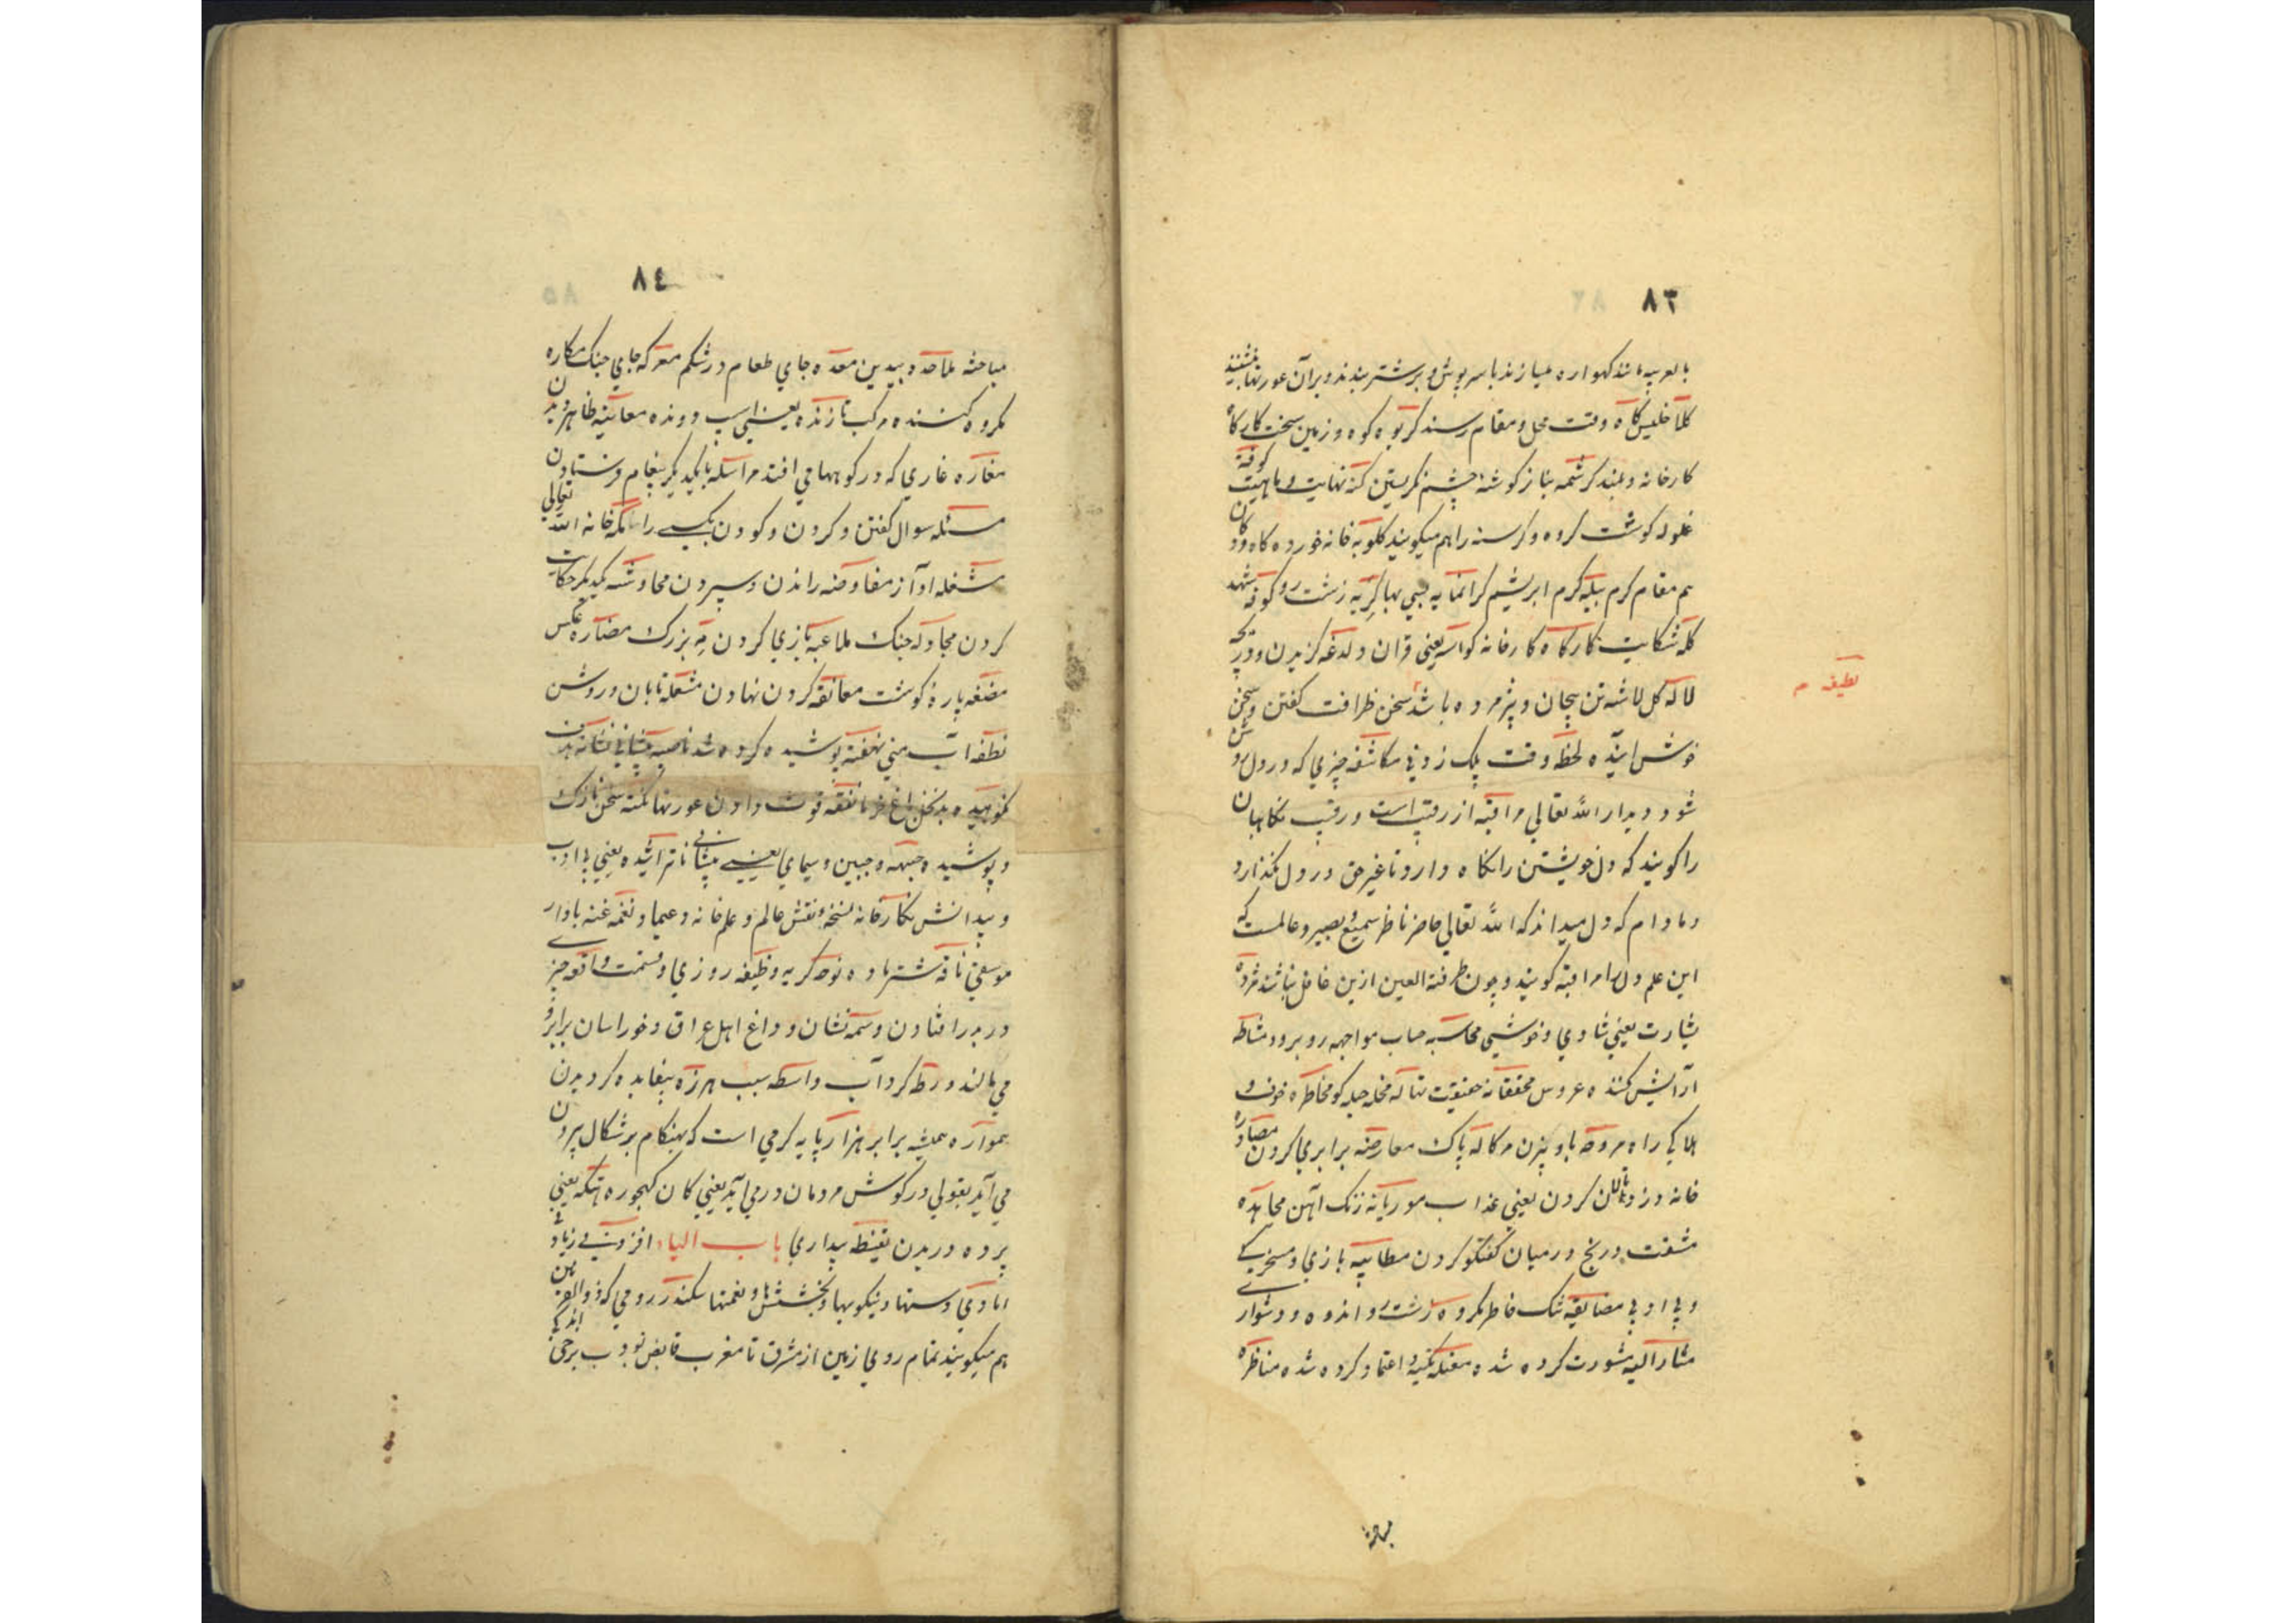 ٨٣
بالعربیه مانند کهواره میسازند با سرپوش و بر شتر بندند و بران عورتها نشینند
کاه وقت محل و مقام رسند کریوه کوه و زمین سخت کارکاه
کارخانه و بلند کرشمه بناز کوشه چشم نکریستن کنه نهایت و ماهیت کوفته
غلوله کوشت کرده و کرسنه را هم میکویند کلوبه خانه خورده کاه و دوکان
هم مقام کرم پیله کرم ابریشم کرانمایه بها کریه زشت رو کوفه
کله شکایت کارکاه کارخانه یعنی قران ولدغه کزیدن دریچه
لاله کل لاشه تن بیجان و پژمرده باشد سخن ظرافت کفتن و سخن
لطیفه م
خوش اینده لحظه وقت پلک زدنی مکاشفه چیزی که در دل روشن
شود دیدار الله تعالی مراقبه از رقیب است و رقیب نکاهبان
را کویند که دل خویشتن را نکاه دارد تا غیر حق در دل نکذارد
و مادام که دل میداند که الله تعالی حاضر ناظر سمیع و بصیر و عالمست که
این علم دل را مراقبه کویند و چون طرفة العین ازین غافل نباشد مژده
بشارت یعنی شادی و خوشی محاسبه حساب مواجهه روبرو مشاطه
آرایش کننده عروس محققانه حقیقت حیله کو مخاطره خوف و
هلاکی راه مروحه بادبیزن پاک معارضه برابری کردن مصادره
خانه دزد کردن یعنی عذاب موریانه زنک آهن مجاهده
مشقت و رنج در میان کفتکو کردن مطایبه بازی و مسخرکی
و بی ادبی مضایقه تنک خاطر مکروه زشت و اندوه و دشوار
مشار الیه مشورت کرده شده اعتماد کرده شده مناظره
مباحثه
٨٤
مباحثه ملاحده بیدین معده جای طعام در شکم معرکه جای جنک مکاره
مکروه کننده مرکب تازنده یعنی اسپ دونده معاینه ظاهر دیدن
مغاره غاری که در کوهها می افتد مراسله بایکدیکر پیغام فرستادن
مسئله سوال کفتن و کردن یکسی را مکه خانه الله تعالی
مشغله اواز مفاوضه راندن و سپردن محاوثه یکدیکر حکایت
کردن مجادله جنک ملاعبه بازی کردن مه بزرک مضاره عکس
مضغه پاره کوشت معانقه کردن نهادن مشعله تابان و روشن
نطفه اب منی نهفته پوشیده کرده شد ناصیه پیشانی نشانه
نکوهیده نفقه قوت دادن عورتها نکته سخن نازک
و پوشیده جبهه و جبین و سیمای یعنی پیشانی ناتراشیده یعنی بی ادب
و بیدانش نکارخانه نسخه و نقش عالم و علم خانه و نغمه غنه باواز
موسقی ناقه شتر ماده نوحه کریه وظیفه روزی و قسمت واقعه چیزی
در سر افتادن وسمه نشان و داغ اهل عراق و خوراسان برابرو
می مالند ورطه کرداب واسطه سبب هرزه بیفایده کردیدن
همواره همیشه برابر هزارپایه کرمی است که بهنکام برشکال بیرون
می آید بقولی در کوش مردمان درمی آید یعنی کان کهجوره هتکه یعنی
پرده دریدن یقیظه بیداری باب الیاء افزونی زیادتی
ایادی دستها و نیکویها و بخششها و نعمتها سکندر رومی که ذو القرنین
هم میکویند تمام روی زمین از مشرق تا مغرب قابض بود